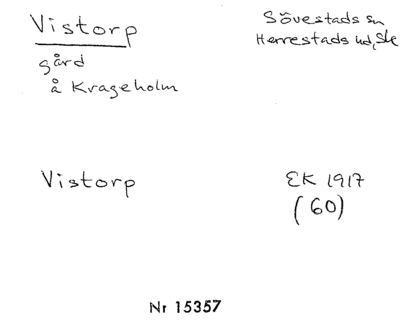 Vistorp
Sövestads sn
Herrestads hd, Sk
gård
å Krageholm
Vistorp
EK 1917
(60)
Nr 15357